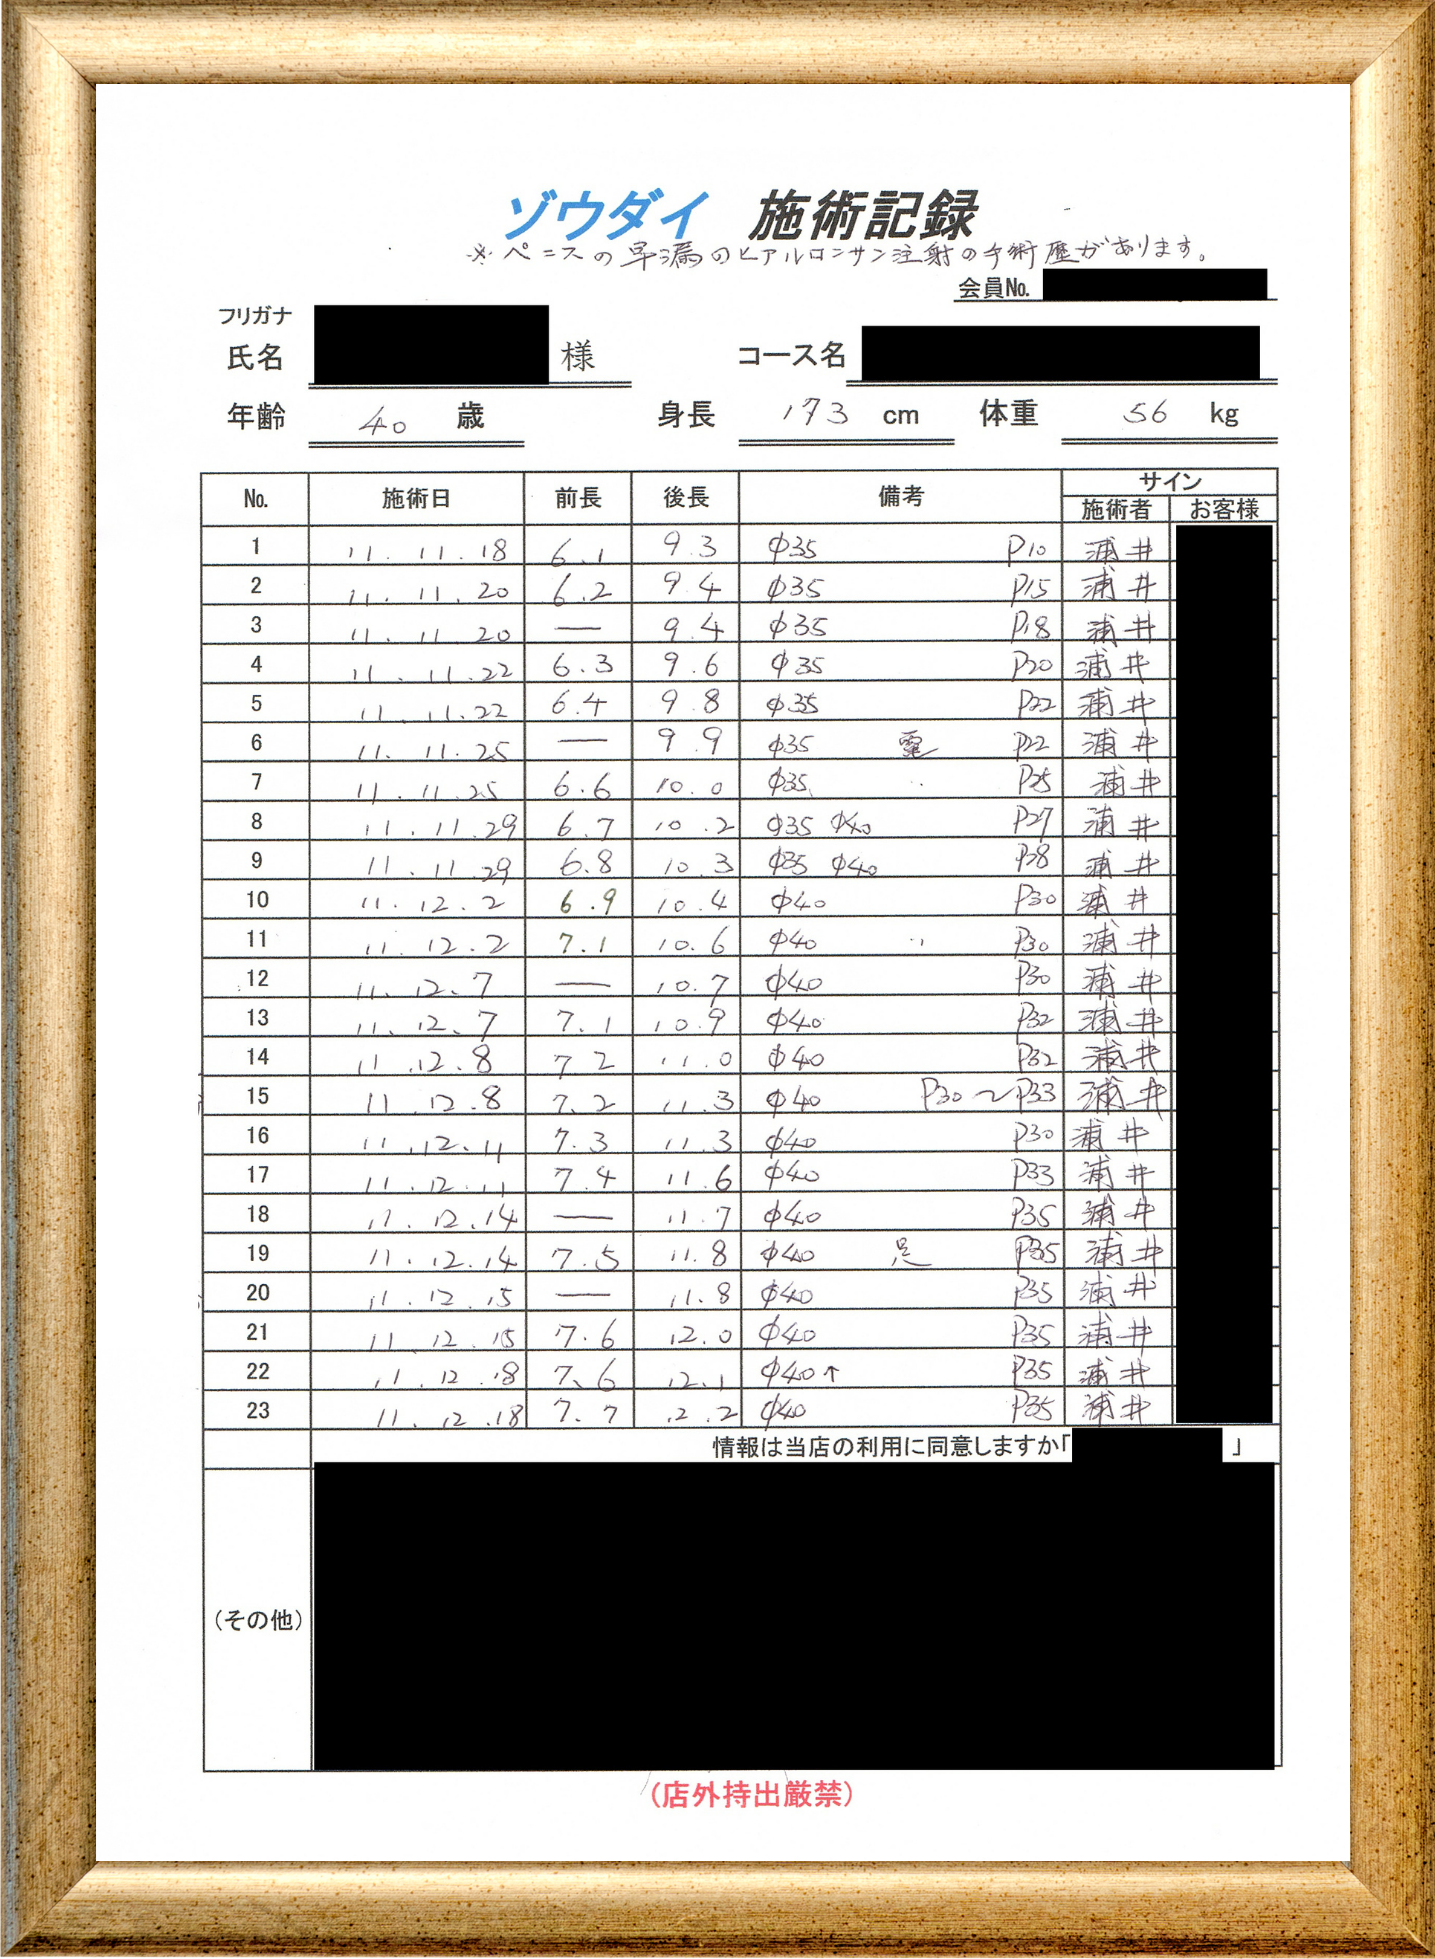 ゾウダイ 施術記録
※ペニスの早漏のヒアルロンサン注射の手術歴があります。
会員No.
フリガナ
氏名 様 コース名
年齢 40 歳 身長 173 cm 体重 56 kg
No. 施術日 前長 後長 備考 サイン
施術者 お客様
1 11.11.18 6.1 9.3 φ35 P10 浦井
2 11.11.20 6.2 9.4 φ35 P15 浦井
3 11.11.20 — 9.4 φ35 P18 浦井
4 11.11.22 6.3 9.6 φ35 P20 浦井
5 11.11.22 6.4 9.8 φ35 P22 浦井
6 11.11.25 — 9.9 φ35 P22 浦井
7 11.11.25 6.6 10.0 φ35 P25 浦井
8 11.11.29 6.7 10.2 φ35 φ40 P27 浦井
9 11.11.29 6.8 10.3 φ35 φ40 P28 浦井
10 11.12.2 6.9 10.4 φ40 P30 浦井
11 11.12.2 7.1 10.6 φ40 P30 浦井
12 11.12.7 — 10.7 φ40 P30 浦井
13 11.12.7 7.1 10.9 φ40 P32 浦井
14 11.12.8 7.2 11.0 φ40 P32 浦井
15 11.12.8 7.2 11.3 φ40 P30〜P33 浦井
16 11.12.11 7.3 11.3 φ40 P30 浦井
17 11.12.11 7.4 11.6 φ40 P33 浦井
18 11.12.14 — 11.7 φ40 P35 浦井
19 11.12.14 7.5 11.8 φ40 P35 浦井
20 11.12.15 — 11.8 φ40 P35 浦井
21 11.12.15 7.6 12.0 φ40 P35 浦井
22 11.12.18 7.6 12.1 φ40↑ P35 浦井
23 11.12.18 7.7 12.2 φ40 P35 浦井
情報は当店の利用に同意しますか「 」
(その他)
(店外持出厳禁)